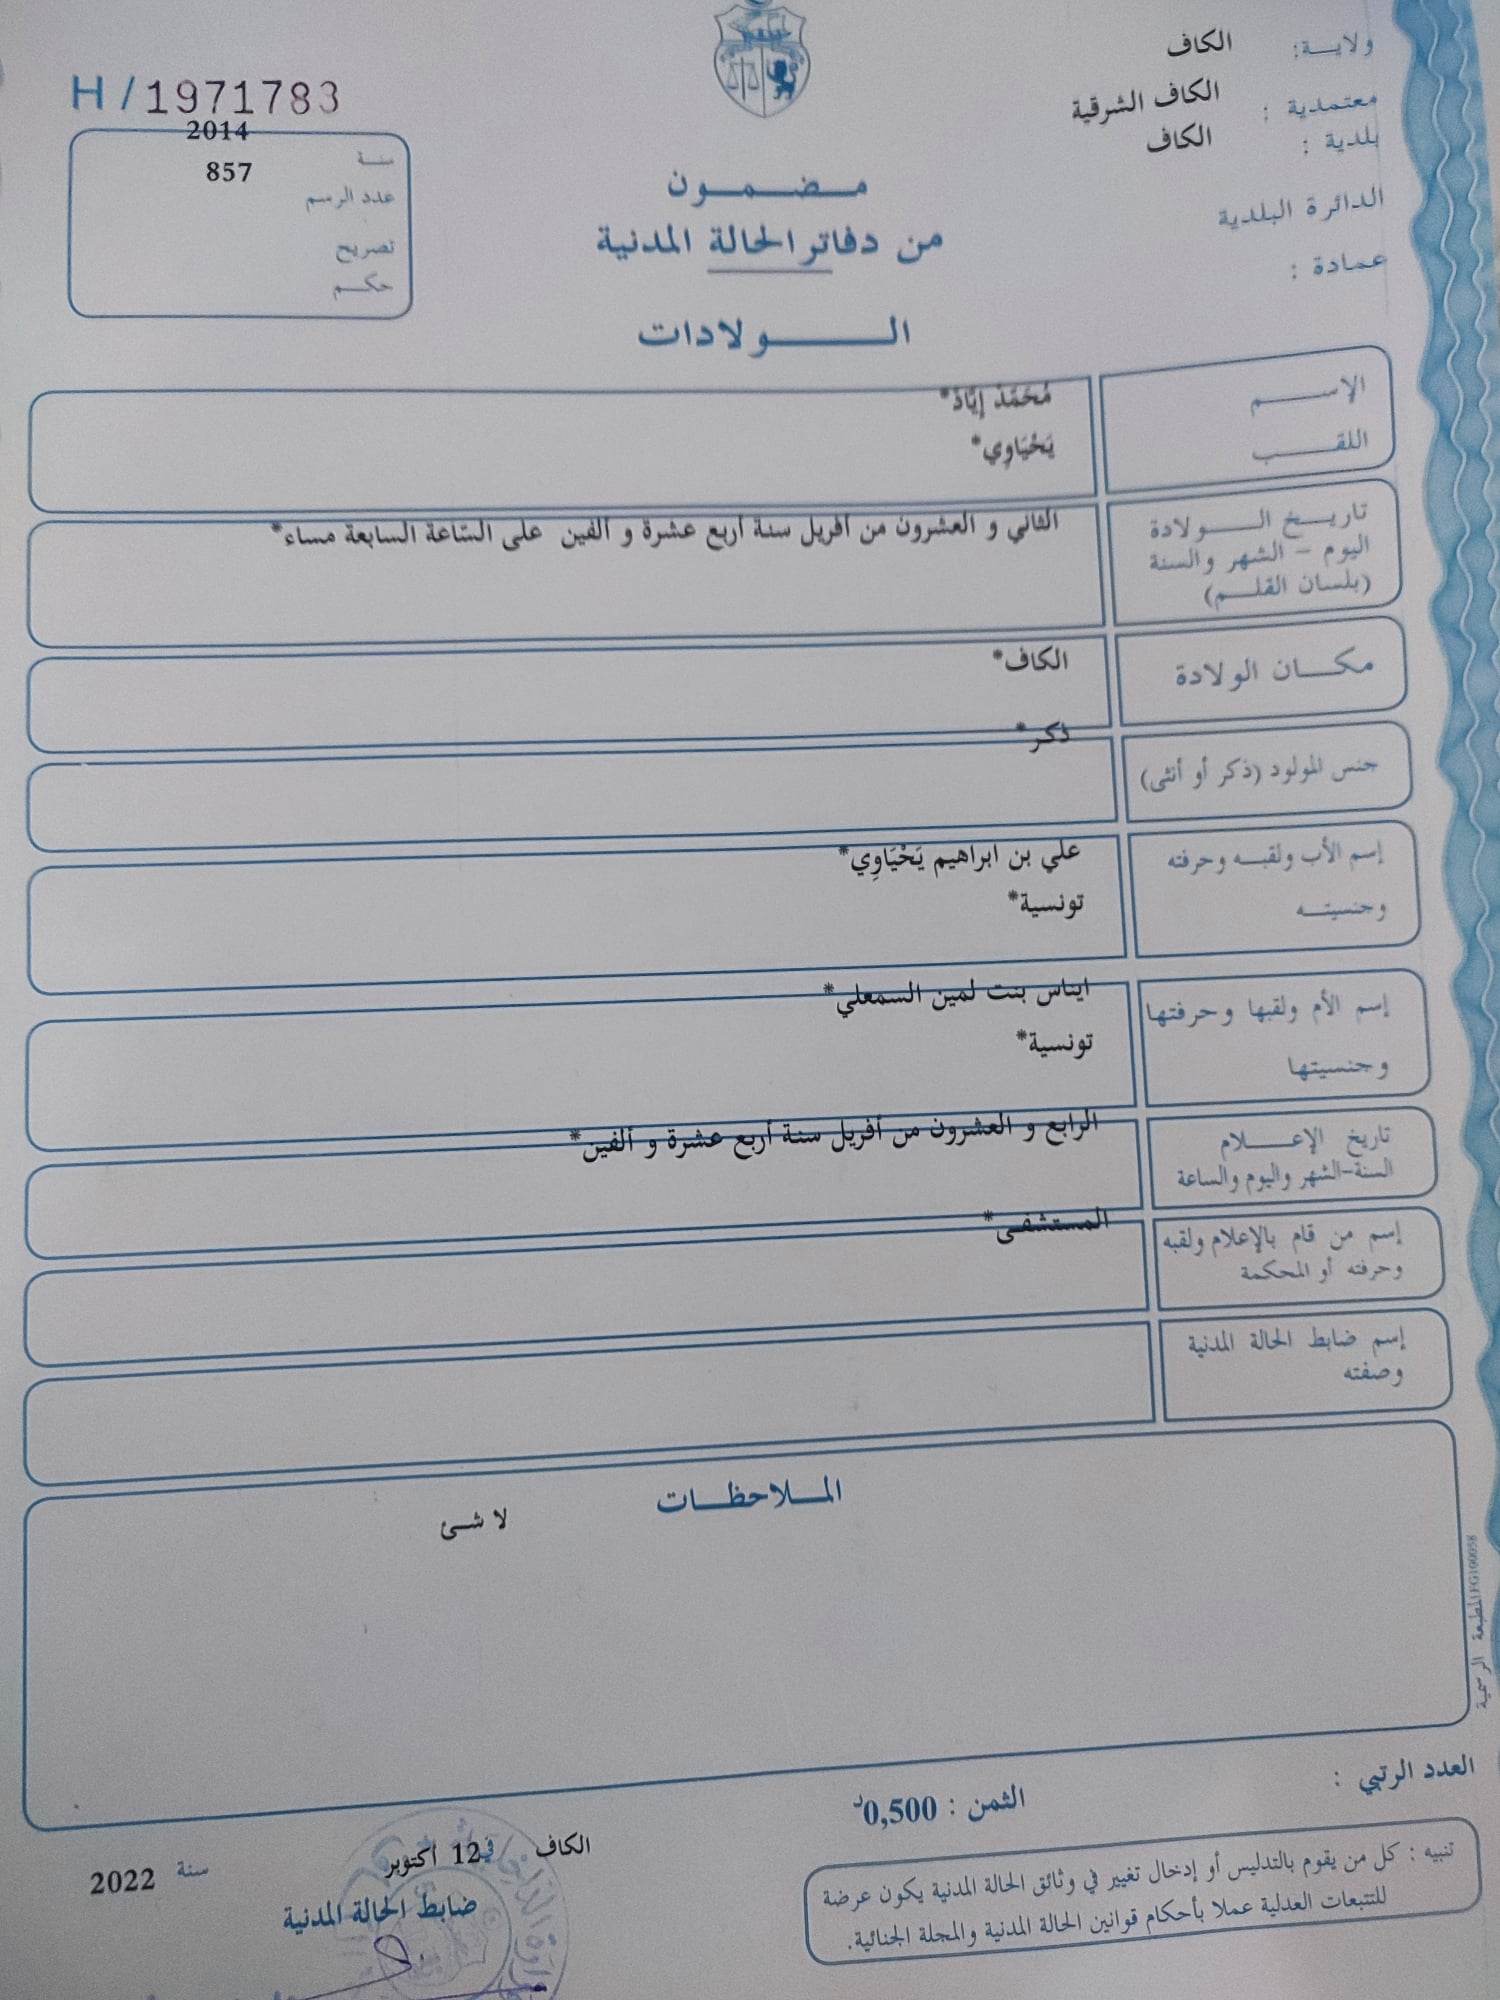 ولاية: الكاف
معتمدية : الكاف الشرقية
بلدية : الكاف
الدائرة البلدية
عمادة :
H/1971783
2014
سنة
857
عدد الرسم
تصريح
حكم
مضمون
من دفاتر الحالة المدنية
الولادات
الإسم مُحَمَّدْ إيَّادْ*
اللقب يَحْيَاوِي*
تاريخ الولادة الثاني و العشرون من أفريل سنة أربع عشرة و ألفين على السّاعة السابعة مساء*
اليوم - الشهر والسنة
(بلسان القلم)
مكان الولادة الكاف*
جنس المولود (ذكر أو أنثى) ذكر*
إسم الأب ولقبه وحرفته علي بن ابراهيم يَحْيَاوِي*
وجنسيته تونسية*
إسم الأم ولقبها وحرفتها ايناس بنت لمين السمعلي*
وجنسيتها تونسية*
تاريخ الإعلام الرابع و العشرون من أفريل سنة أربع عشرة و ألفين*
السنة-الشهر واليوم والساعة
إسم من قام بالإعلام ولقبه المستشفى*
وحرفته أو المحكمة
إسم ضابط الحالة المدنية
وصفته
الملاحظات
لا شئ
المطبعة الرسمية FG100058
العدد الرتبي :
الثمن : 0,500د
تنبيه : كل من يقوم بالتدليس أو إدخال تغيير في وثائق الحالة المدنية يكون عرضة
للتتبعات العدلية عملا بأحكام قوانين الحالة المدنية والمجلة الجنائية.
الكاف في 12 أكتوبر سنة 2022
ضابط الحالة المدنية